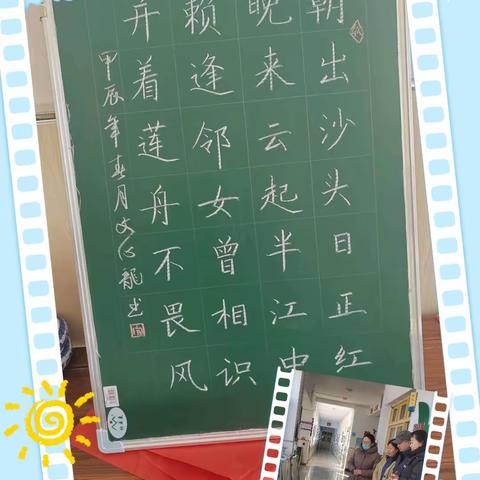 朝出沙头日正红
晚来云起半江中
赖逢邻女曾相识
并着莲舟不畏风
甲辰年春月文心龍书